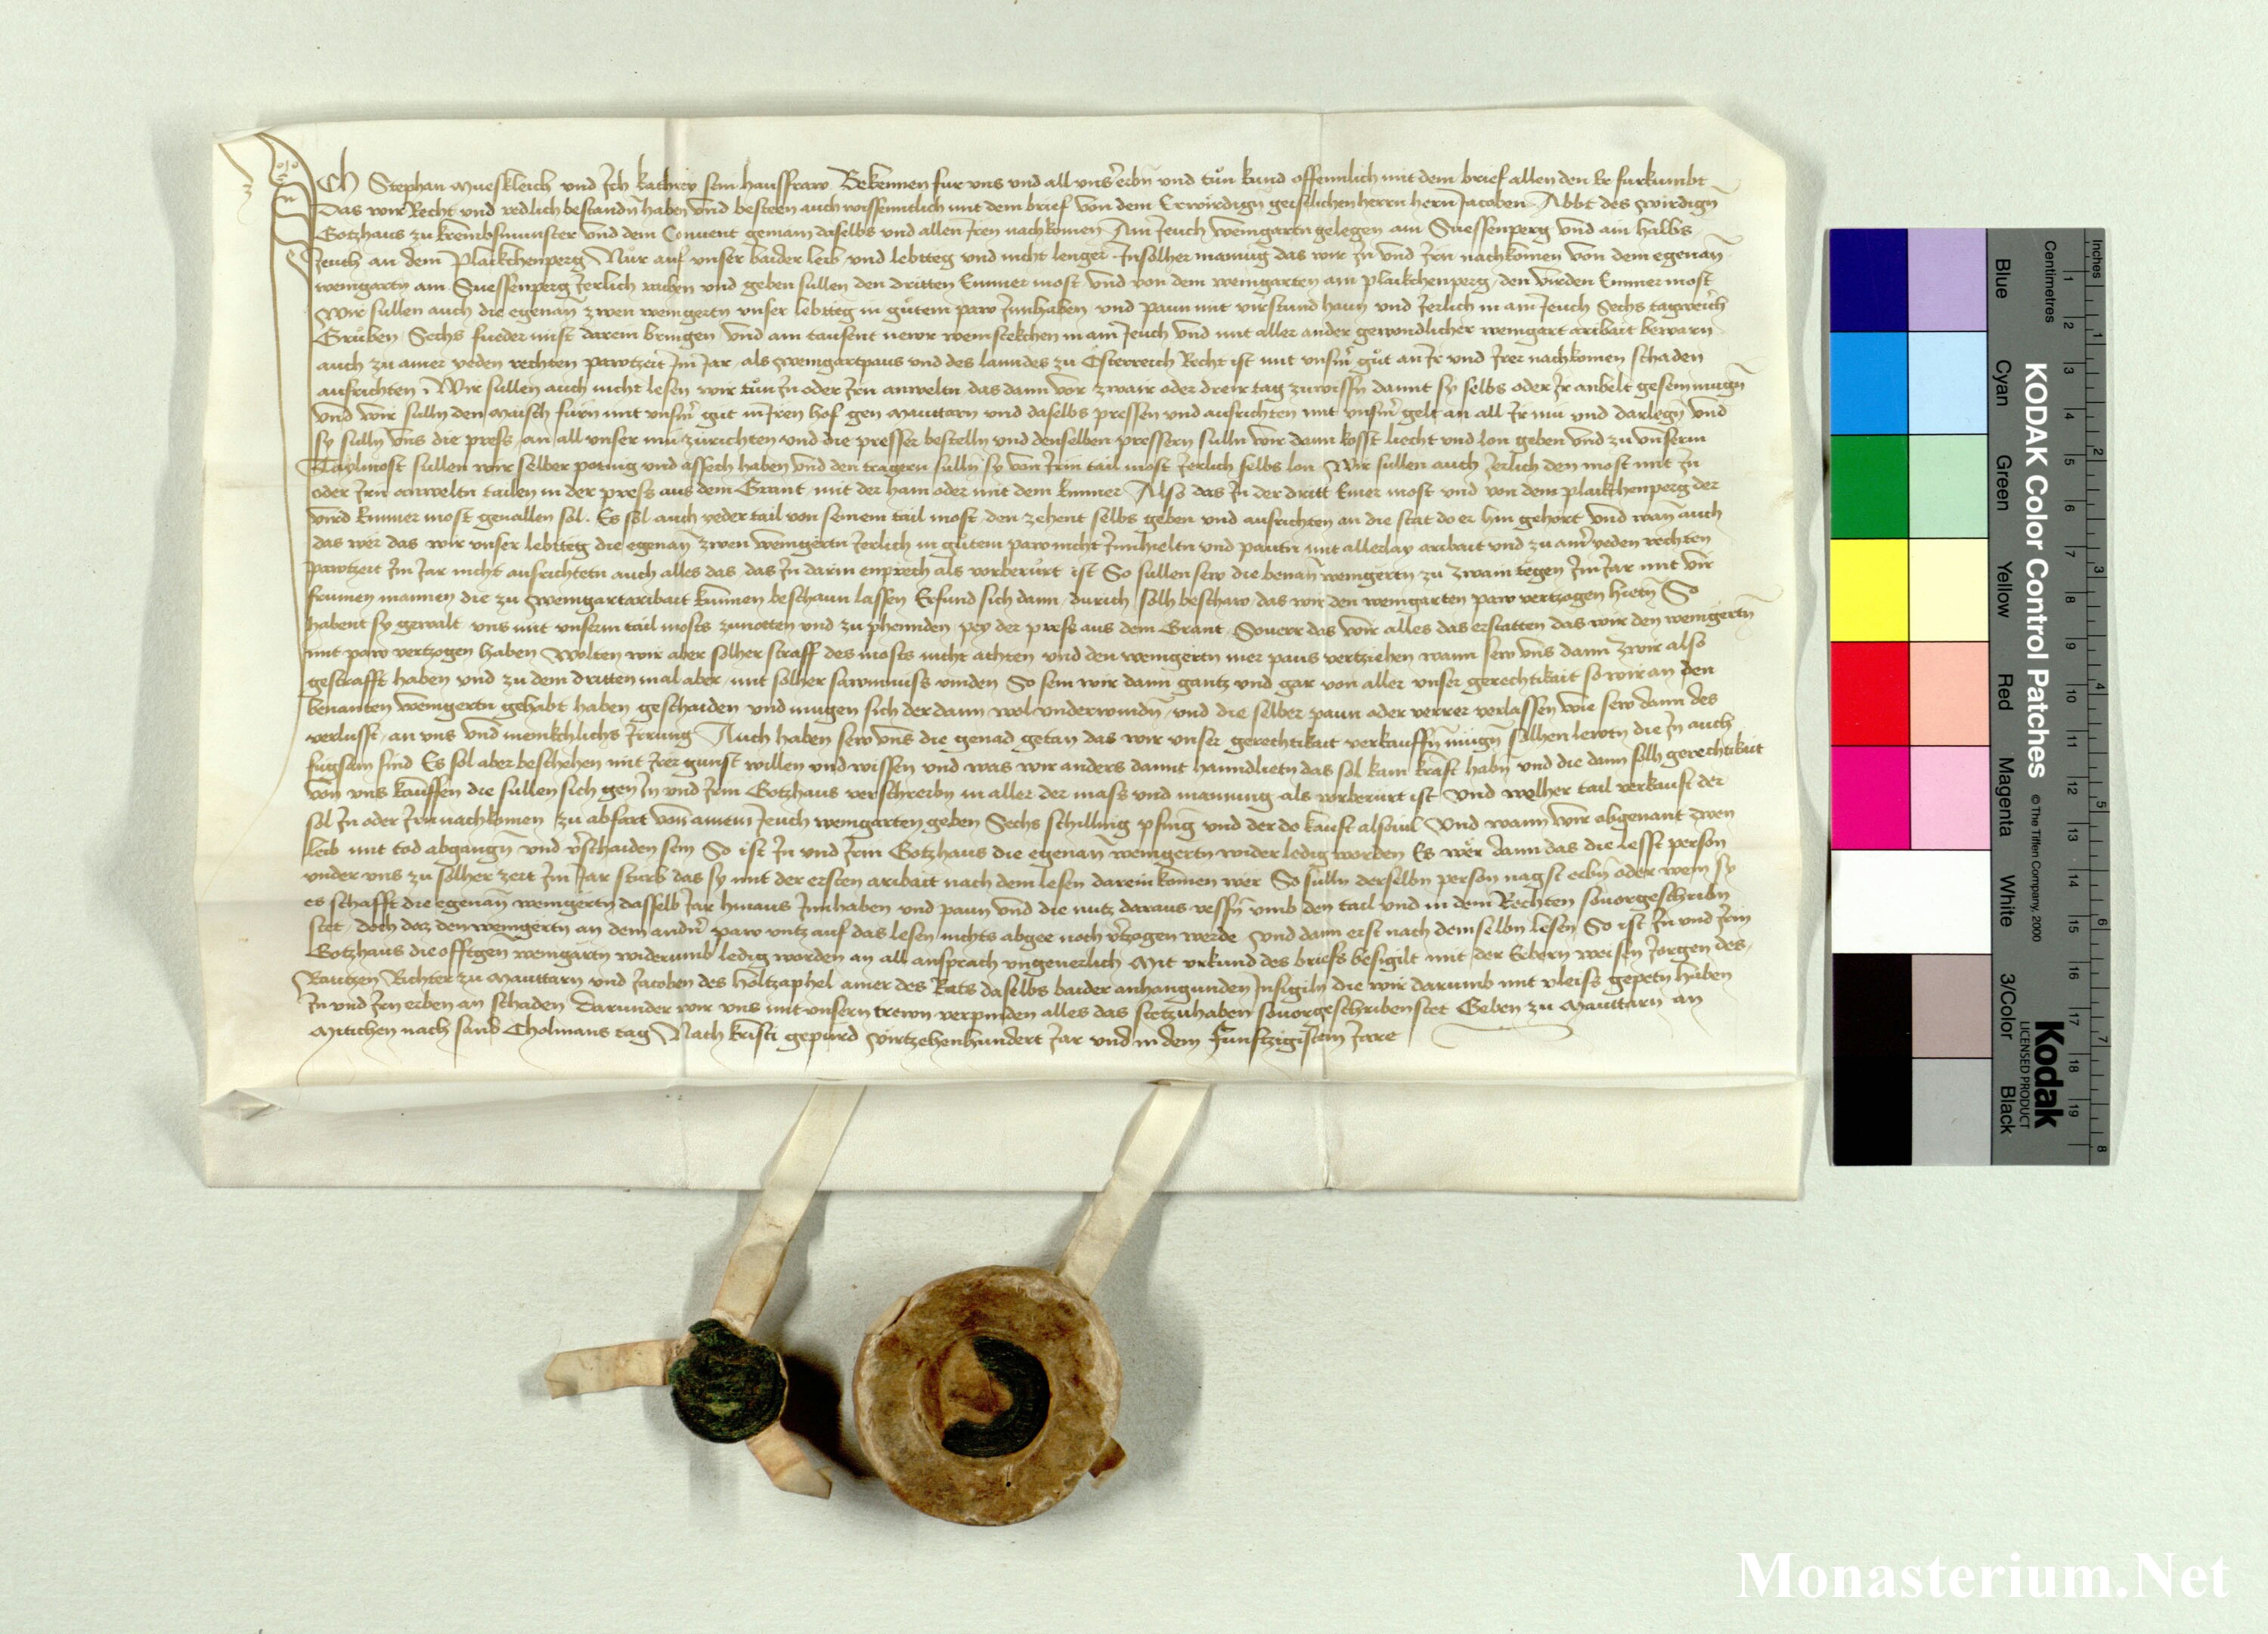 Ich Stephan Mueskleich und Ich kathrey sein hausfraw Bekennen fur uns und all unser erbn und tůn kund offennlich mit dem brief allen den Er furkumbt
Das wir Recht und redlich bestandn haben und besteen auch wissenntlich mit dem brief von dem Erwirdign geistlichen herrn hern Jacoben Abbt des wirdign
Gotzhaus zu krembsmunster und dem Convent gemain daselbs und allen Jren nachkomen Ain Jeuch weingartn gelegen am Suessenperg und ain halbs
Jeuch an dem Plaikchenperg Nůr auf unser baider leib und lebtteg und nicht lenger Jn solher mainung das wir Jn und Jrn nachkomen von dem egenan
weingartn am Suessenperg Jerlich raichen und geben sullen den dritten Emmer most und von dem weingarten am plaikchenperg den virden Emmer most
Wir sullen auch die egenan zwen weingertn unser lebtteg in gůtem paw Jnnhaben und paun mit virstund haun und Jerlich in ain Jeuch Sechs tagwerch
Grůben Sechs fueder mist darein bringen und ain tausent newr weinstekchen in ain Jeuch und mit aller ander gewondlicher weingart aribait bewarn
auch zu ainer yeden rechten pawtzeit Jm Jar als weingartpaus und des lanndes zu Österreich Recht ist mit unserm gůt an Jr und Jrer nachkomen schaden
ausrichten Wir sullen auch nicht lesen wir tůn Jn oder Jrn anweltn das dann vor zwair oder dreir tag zuwissn damit sy selbs oder Jr anbelt gesein mugn
und wir sulln den Maisch fůrn mit unserm gut in Jren hof gen Mauttarn und daselbs pressen und ausrichten mit unserm gelt an all Jr mü und darlegn und
sy sulln uns die press an all unser mü zurichten und die presser bestelln und denselben pressern sulln wir dann kosst liecht und lon geben und zu unserm
Tailmost sullen wir selber potnig und assech haben und den tragern sulln sy von Jrm tail most Jerlich selbs lon Wir sullen auch Jerlich den most mit Jn
oder Jrn anweltn tailen in der press aus dem Grant mit der ham oder mit dem Emmer Also das Jn der dritt Emer most und von dem plaikhenperg der
vird Emmer most geuallen sol. Es sol auch yeder tail von seinem tail most den zehent selbs geben und ausrichten an die stat do er hin gehort Und wan auch
das wer das wir unser lebtteg die egenan zwen weingertn Jerlich in gůtem paw nicht Jnnhieltn und pautn mit allerlay aribait und zu ainer yeden rechten
pawtzeit Jm Jar nicht ausrichtetn auch alles das das Jn darin enprech als vorberůrt ist So sullen sew die benan weingertn zu zwain tegen Jm Jar mit vir
frumen mannen die zu weingartaribait kunnen beschaun lassen Erfund sich dann durich solh beschaw das wir den weingarten paw vertzogen hietn So
habent sy gewalt uns mit unserm tail mosts zunotten und zu phennden pey der press aus dem Grant Souerr das wir alles das erstatten das wir den weingertn
mit paw vertzogen haben Wolten wir aber solher straff des mosts nicht achten und den weingertn mer paus vertziehen wann sew uns dann zwir also
gestrafft haben und zu dem dritten mal aber mit solher sawmnuss vinden So sein wir dann gantz und gar von aller unser gerechtikait so wir an den
benanten weingertn gehabt haben geschaiden und mugen sich der dann wol underwindn und die selber paun oder verrer verlassen wie sew dann des
verlusst an uns und menikchlichs Jrrung Auch haben sew uns die genad getan das wir unser gerechtikait verkauffn mügn solhen lewtn die Jn auch
fugsam sind Es sol aber beschehen mit Jrer gunst willen und wissen und was wir anders damit hanndlietn das sol kain kraft habn und die dann solh gerechtikait
von uns kauffen die sullen sich gen Jn und Jrm Gotzhaus verschreibn in aller der mass und mainung als vorberurt ist und welher tail verkauft der
sol Jn oder Jrn nachkomen zu abfart von ainem Jeuch weingarten geben Sechs schilling pfenig und der do kauft alsouil Und wann wir obgenant zwen
leib mit tod abgangn und verschaiden sein So ist Jn und Jrm Gotzhaus die egenan weingertn wider ledig worden Es wer dann das die lesst person
under uns zu solher zeit Jm Jar sturb das sy mit der ersten aribait nach dem lesen darein komen wer So sulln derselbn person nagst erbn oder wem sy
es schafft die egenan weingertn dasselb Jar hinaus Jnnhaben und paun und die nutz daraus vessn umb den tail und in dem Rechten souorgeschribn
stet doch daz den weingertn an dem andern paw untz auf das lesen nichts abgee noch vertzogen werde und dann erst nach demselbn lesen So ist Jn und Jrm
Gotzhaus die offtgen weingartn widerumb ledig worden an all ansprach ungeuerlich Mit urkund des briefs besigilt mit der Erbern weisen Jorgen des
Rautzen Richter zu Mauttarn und Jacoben des holtzaphel ainer des Rats daselbs baider anhangunden Jnsigiln die wir darumb mit vleiss gepetn haben
Jn und Jrn erben an schaden Darunder wir uns mit unsern trewn verpinden alles das stetzuhaben souorgeschriben stet Geben zu Mauttarn an
Mitichen nach sand Cholmans tag Nach kristi gepurd virtzehenhundert Jar und in dem Funftzigistem Jare
KODAK Color Control Patches © The Tiffen Company, 2000
Kodak
LICENSED PRODUCT
Inches 1 2 3 4 5 6 7 8
Centimetres 1 2 3 4 5 6 7 8 9 10 11 12 13 14 15 16 17 18 19
Blue Cyan Green Yellow Red Magenta White 3/Color Black
Monasterium.Net